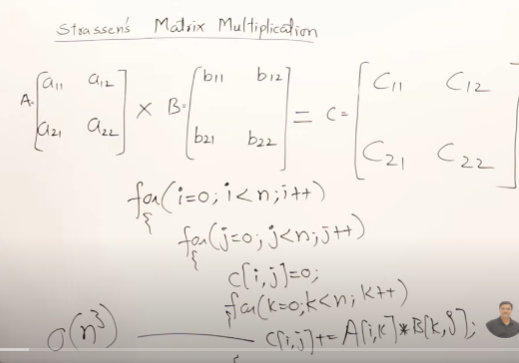 Strassen's Matrix Multiplication
A= [a11 a12 a21 a22] × B= [b11 b12 b21 b22] = C= [C11 C12 C21 C22]
for(i=0; i<n; i++)
{
for(j=0; j<n; j++)
{
c[i,j]=0;
for(k=0; k<n; k++)
{
O(n³) C[i,j]+= A[i,k]*B[k,j];